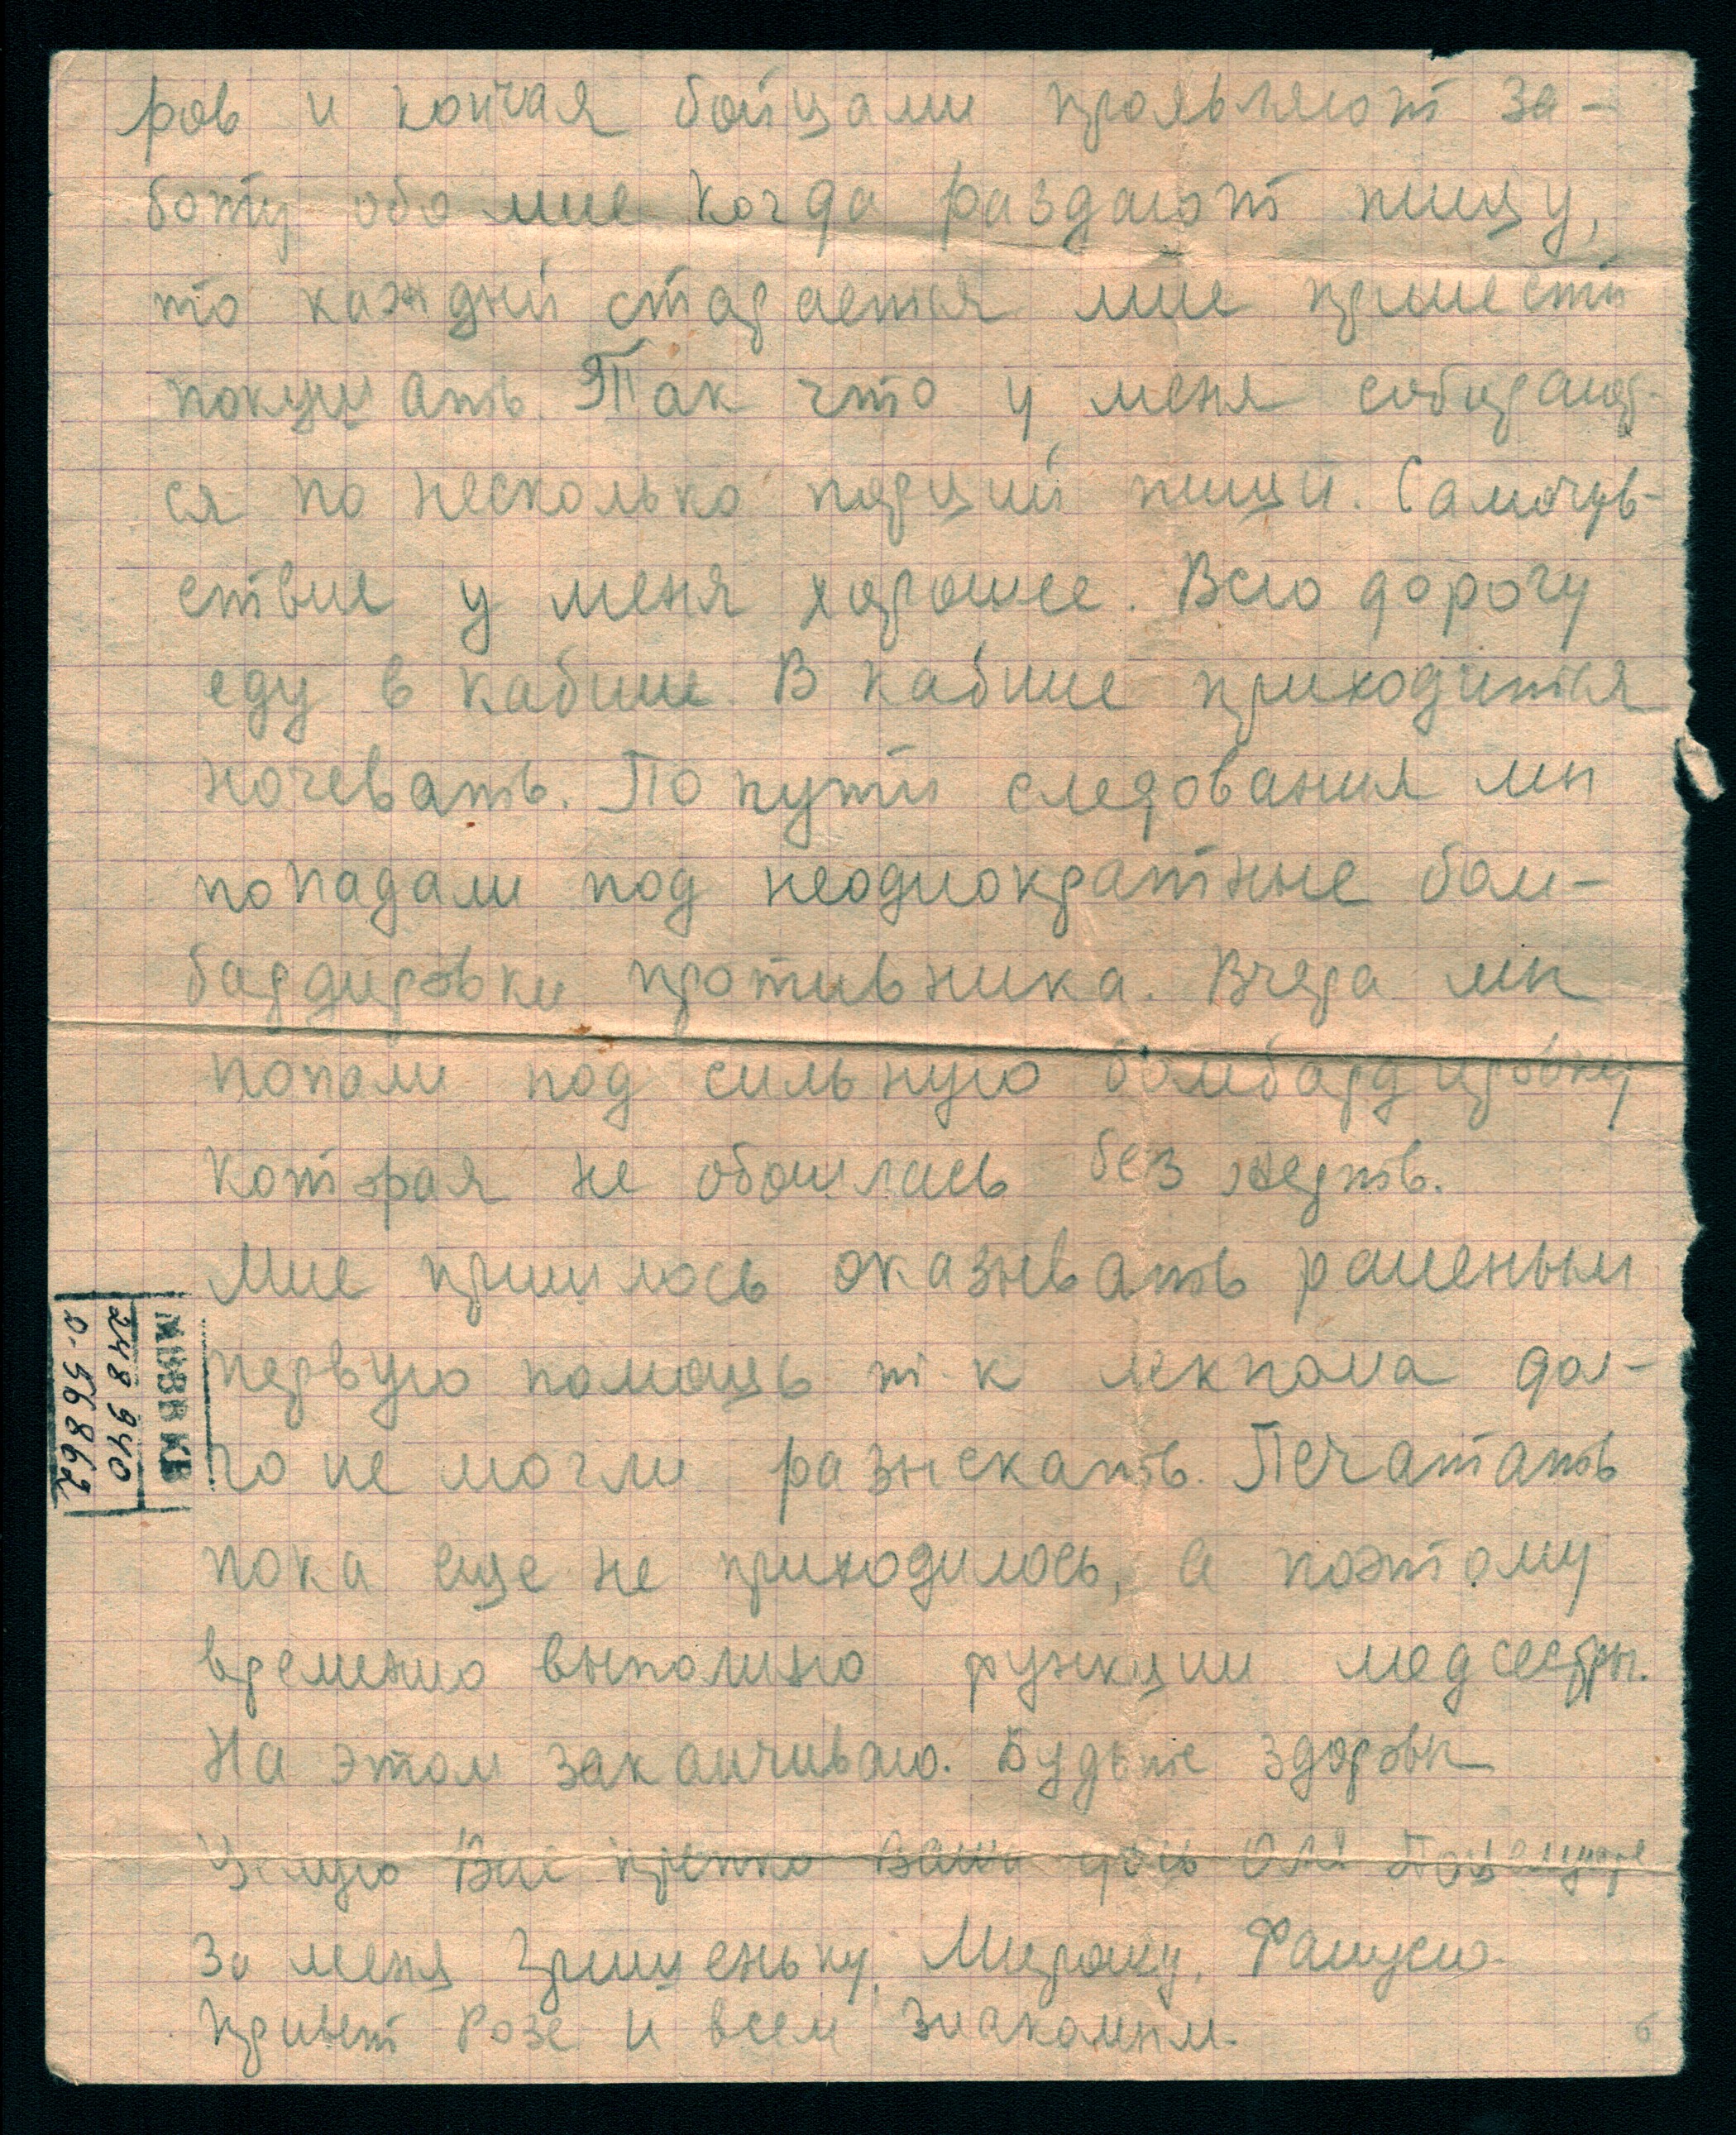 ров и кончая бойцами проявляют за-
боту обо мне когда раздают пищу,
то каждый старается мне принести
покушать. Так что у меня собирают-
ся по несколько порций пищи. Самочув-
ствие у меня хорошее. Всю дорогу
еду в кабине. В кабине приходится
ночевать. По пути следования мы
попадали под неоднократные бом-
бардировки противника. Вчера мы
попали под сильную бомбардировку
которая не обошлась без жертв.
Мне пришлось оказывать раненым
первую помощь т.к лекпома дол-
го не могли разыскать. Печатать
пока еще не приходилось, а поэтому
временно выполняю функции медсестры.
На этом заканчиваю. Будьте здоровы
Целую Вас крепко Ваша дочь Оля Поцелуйте
За меня Гришеньку, Мирочку, Фанусю.
Привет Розе и всем знакомым.
6
МВВВ КП
248940
0-56862